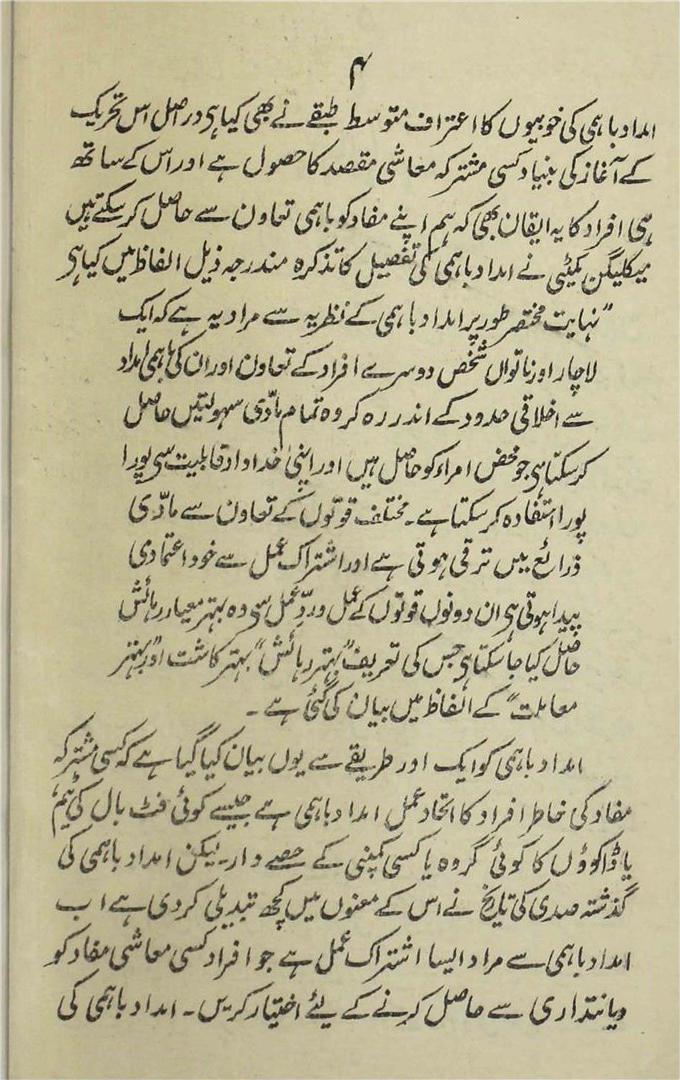 ۴
امداد باہمی کی خوبیوں کا اعتراف متوسط طبقے نے بھی کیا ہی دراصل اس تحریک
کے آغاز کی بنیاد کسی مشترکہ معاشی مقصد کا حصول ہے اور اس کے ساتھ
ہی افراد کا یہ ایقان بھی کہ ہم اپنے مفاد کو باہمی تعاون سے حاصل کرسکتے ہیں
میکلیگن کمیٹی نے امداد باہمی کی تفصیل کا تذکرہ مندرجہ ذیل الفاظ میں کیا ہی
”نہایت مختصر طور پر امداد باہمی کے نظریہ سے مراد یہ ہے کہ ایک
لاچار اور ناتواں شخص دوسرے افراد کے تعاون اور ان کی باہمی امداد
سے اخلاقی حدود کے اندر رہ کر وہ تمام مادّی سہولتیں حاصل
کرسکتا ہی جو محض امراء کو حاصل ہیں اور اپنی خداداد قابلیت سی پورا
پورا استفادہ کرسکتا ہے۔ مختلف قوتوں کے تعاون سے مادّی
ذرائع میں ترقی ہوتی ہے اور اشتراک عمل سے خود اعتمادی
پیدا ہوتی ہی ان دونوں قوتوں کے عمل وردِّعمل سی وہ بہتر معیار رہائش
حاصل کیا جاسکتا ہی جس کی تعریف ”بہتر رہائش“ ”بہتر کاشت“ اور ”بہتر
معاملت“ کے الفاظ میں بیان کی گئی ہے۔
امداد باہمی کو ایک اور طریقے سے یوں بیان کیا گیا ہے کہ کسی مشترکہ
مفاد کی خاطر افراد کا اتحاد عمل امداد باہمی ہے جیسے کوئی فٹ بال کی ٹیم
یا ڈاکوؤں کا کوئی گروہ یا کسی کمپنی کے حصے دار۔ لیکن امداد باہمی کی
گذشتہ صدی کی تاریخ نے اس کے معنوں میں کچھ تبدیلی کردی ہے اب
امداد باہمی سے مراد ایسا اشتراک عمل ہے جو افراد کسی معاشی مفاد کو
دیانتداری سے حاصل کرنے کے لیئے اختیار کریں۔ امداد باہمی کی